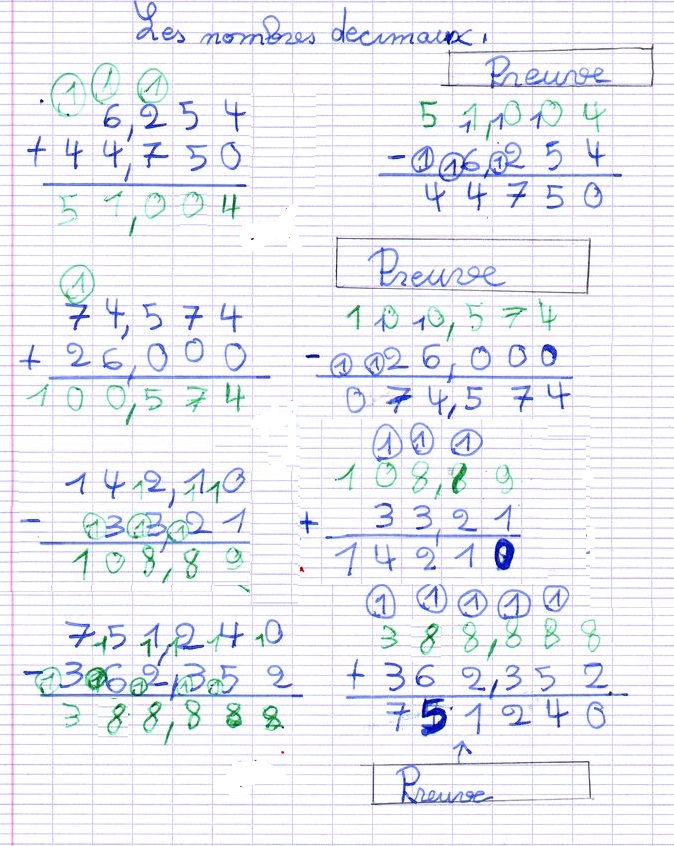 Les nombres decimaux.
Preuve
1 1 1
6,254
+ 44,750
51,004
5 1,1010 4
- 1 16,1254
44750
Preuve
1
74,574
+ 26,000
100,574
1 10 10,574
- 1 126,000
074,574
142,110
- 133,21
108,89
1 1 1
108,89
+ 33,21
14210
751,240
- 362,352
388,888
1 1 1 1 1
388,888
+ 362,352
751240
↑
Preuve